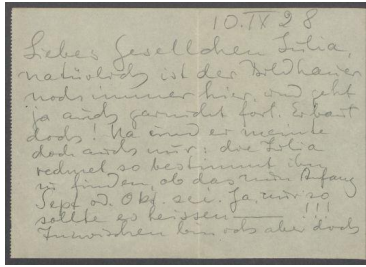 10.IX 28
Liebes Gesellchen Lilia,
natürlich ist der Bildhauer
noch immer hier und geht
ja auch garnicht fort. Er baut
doch! Na und er meinte
doch auch nur: die Lilia
rechnet so bestimmt ihn
zu finden, ob das nun Afang
Sept od. Okt. sei. Ja, nur so
sollte es heissen — !!!
Inzwischen bin ich aber doch